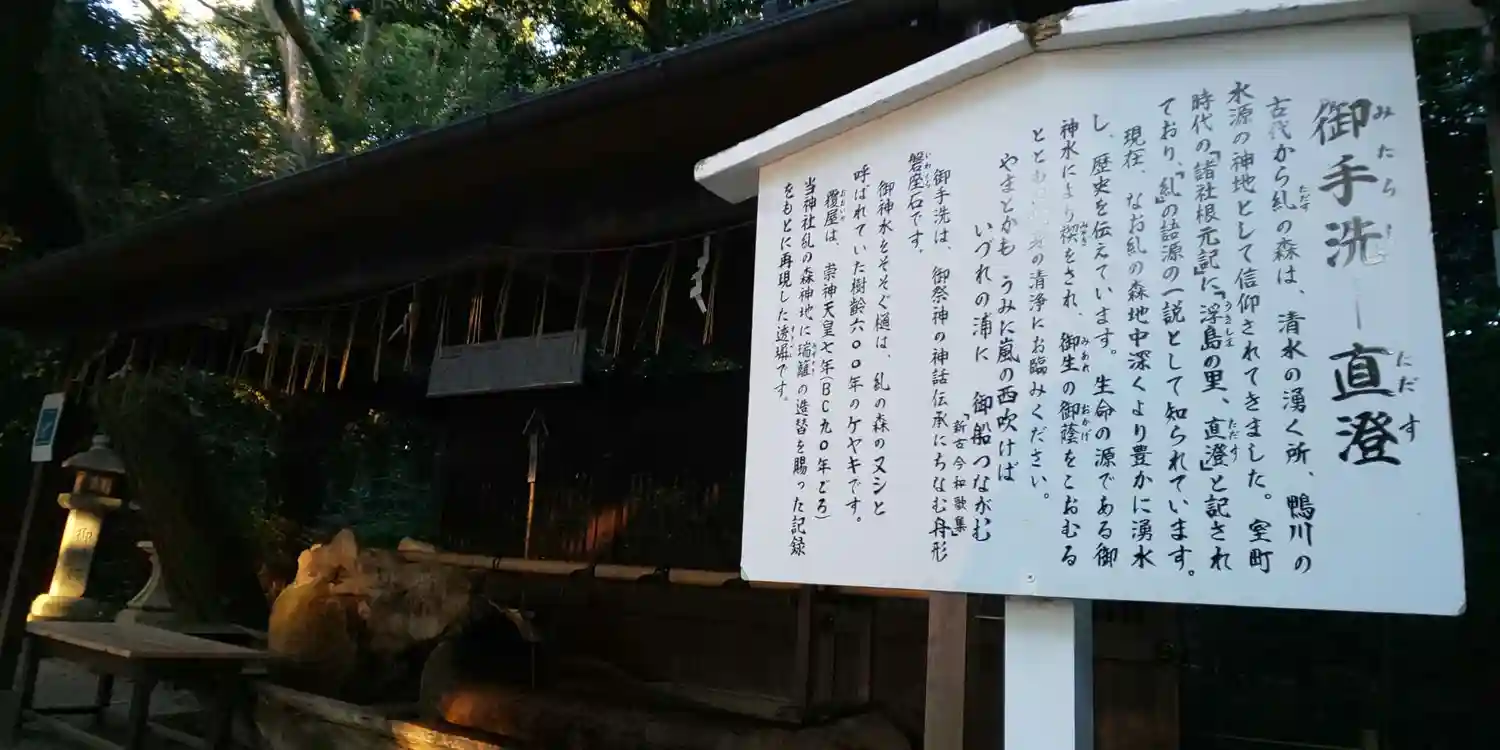 御手洗―直澄
みたらし
ただす
古代から糺の森は、清水の湧く所、鴨川の
ただす
水源の神地として信仰されてきました。室町
時代の『諸社根元記』に『浮島の里、直澄』と記され
うきしま
ただす
ており、『糺』の語源の一説として知られています。
現在、なお糺の森地中深くより豊かに湧水
し、歴史を伝えています。生命の源である御
神水により禊をされ、御生の御蔭をこおむる
みそぎ
みあれ
おかげ
とともに の清浄にお臨みください。
やまとかも うみに嵐の西吹けば
いづれの浦に 御船つながむ
「新古今和歌集」
御手洗は、御祭神の神話伝承にちなむ舟形
磐座石です。
いわくら
御神水をそそぐ樋は、糺の森のヌシと
呼ばれていた樹齢六〇〇年のケヤキです。
覆屋は、崇神天皇七年(BC九〇年ごろ)
おおいや
当神社糺の森神地に瑞籬の造替を賜った記録
みずがき
をもとに再現した透塀です。